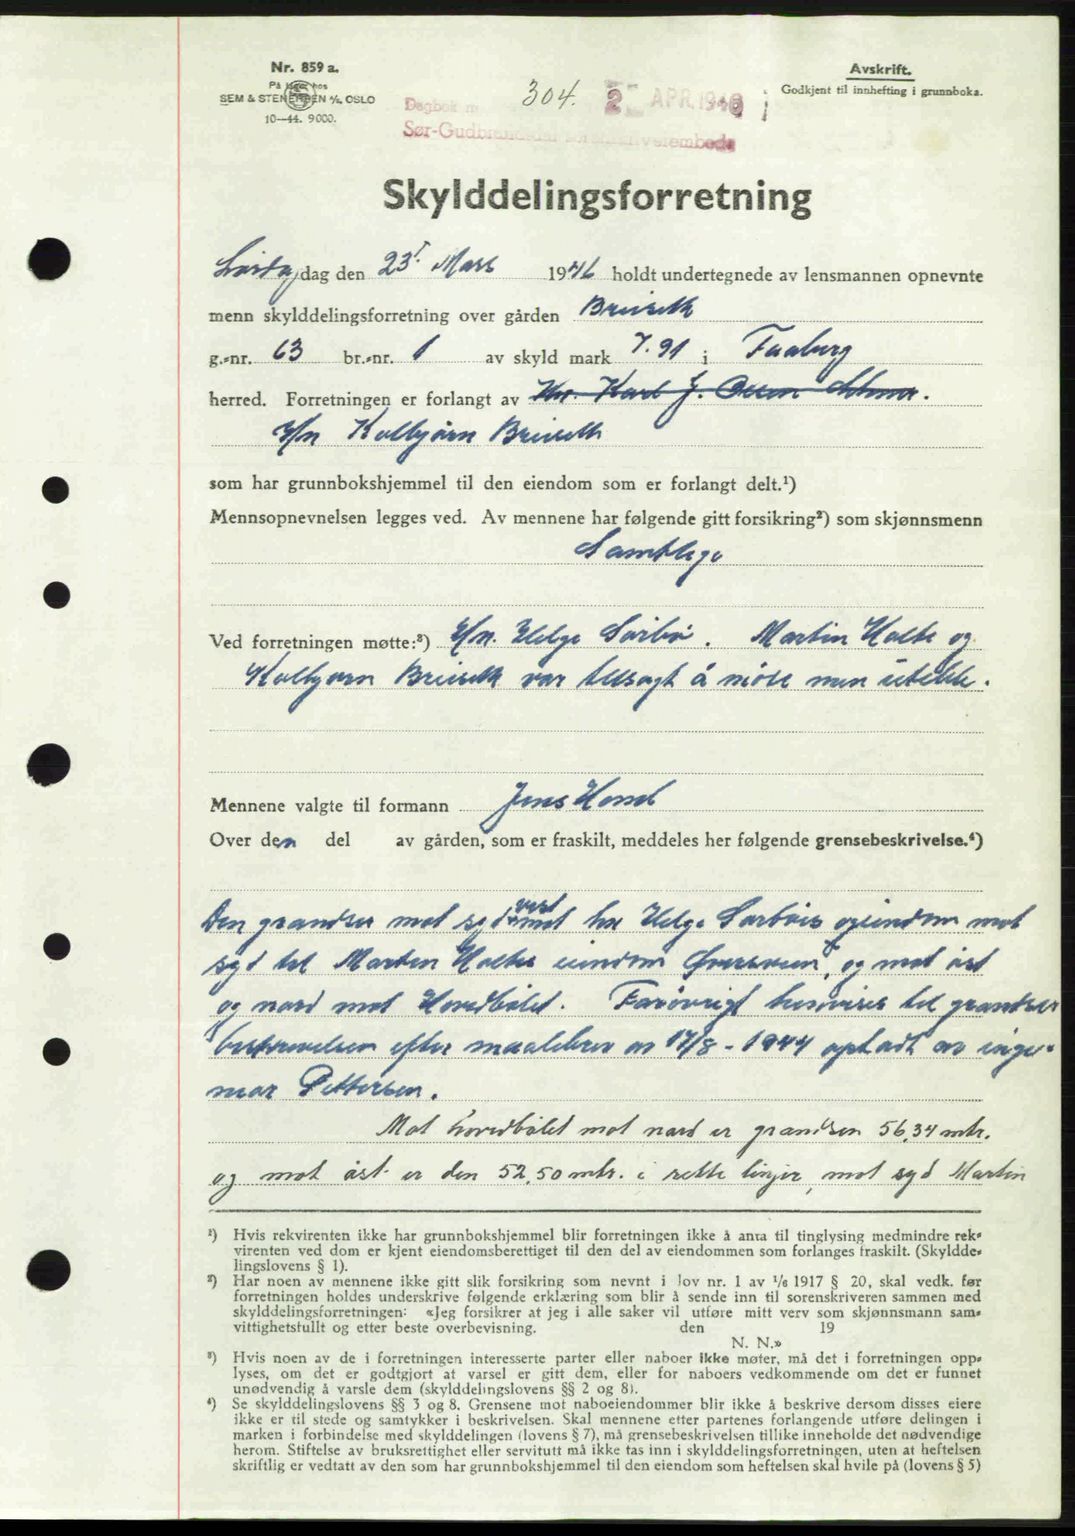 Nr. 859 a.
På lager hos
SEM & STENERSEN A/S. OSLO
10—44. 9000.
304.
Dagbok nr
2 APR. 1946
Sør-Gudbrandsdal sorenskriverembede
Avskrift.
Godkjent til innhefting i grunnboka.
Skylddelingsforretning
Lørdag dag den 23. Mars 1946 holdt undertegnede av lensmannen opnevnte
menn skylddelingsforretning over gården Breiseth
g.-nr. 63 br.-nr. 1 av skyld mark 7.91 i Faaberg
herred. Forretningen er forlangt av Hr. Karl J. Olsen
Hr. Kolbjørn Breiseth
som har grunnbokshjemmel til den eiendom som er forlangt delt.¹)
Mennsopnevnelsen legges ved. Av mennene har følgende gitt forsikring²) som skjønnsmenn
Samtlige
Ved forretningen møtte:³) Hr. Helge Sørbø. Martin Holte og
Kolbjørn Breiseth var tilsagt å møte men uteble.
Mennene valgte til formann Jens Hovd
Over den del av gården, som er fraskilt, meddeles her følgende grensebeskrivelse.⁴)
Den grandser mot syd vest mot hr Helge Sørbøes eiendom mot
syd til Martin Holtes eiendom og mot øst
og nord mot Hovedbølet. Forøvrigt henvises til grandse
beskrivelsen efter maalebrev av 17/8 - 1944 optadt av inge-
niør Pettersen.
Mot hovedbølet mot nord er grandsen 56,34 mtr.
og mot øst er den 52,50 mtr. i rette linjer, mot syd Martin
¹) Hvis rekvirenten ikke har grunnbokshjemmel blir forretningen ikke å anta til tinglysing medmindre rek-
virenten ved dom er kjent eiendomsberettiget til den del av eiendommen som forlanges fraskilt. (Skyldde-
lingslovens § 1).
²) Har noen av mennene ikke gitt slik forsikring som nevnt i lov nr. 1 av 1/6 1917 § 20, skal vedk. før
forretningen holdes underskrive følgende erklæring som blir å sende inn til sorenskriveren sammen med
skylddelingsforretningen: «Jeg forsikrer at jeg i alle saker vil utføre mitt verv som skjønnsmann sam-
vittighetsfullt og etter beste overbevisning. den 19
N. N.»
³) Hvis noen av de i forretningen interesserte parter eller naboer ikke møter, må det i forretningen opp-
lyses, om det er godtgjort at varsel er gitt dem, eller for naboers vedkommende om det er funnet
unødvendig å varsle dem (skylddelingslovens §§ 2 og 8).
⁴) Se skylddelingslovens §§ 3 og 8. Grensene mot naboeiendommer blir ikke å beskrive dersom disses eiere
ikke er til stede og samtykker i beskrivelsen. Skal mennene etter partenes forlangende utføre delingen i
marken i forbindelse med skylddelingen (lovens § 7), må grensebeskrivelsen tillike inneholde det nødvendige
herom. Stiftelse av bruksrettighet eller servitutt må ikke tas inn i skylddelingsforretningen, uten at heftelsen
skriftlig er vedtatt av den som har grunnbokshjemmel til den eiendom som heftelsen skal hvile på (lovens § 5)